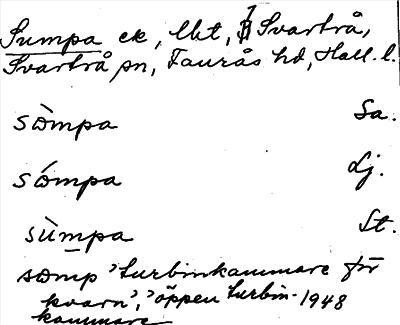 Sumpa ek, lht, Svartrå,
Svartrå sn, Faurås hd, Hall. l.
sòmpa Sa.
sómpa Lj.
sùmpa St.
somp 'turbinkammare för
kvarn', 'öppen turbin- 1948
kammare